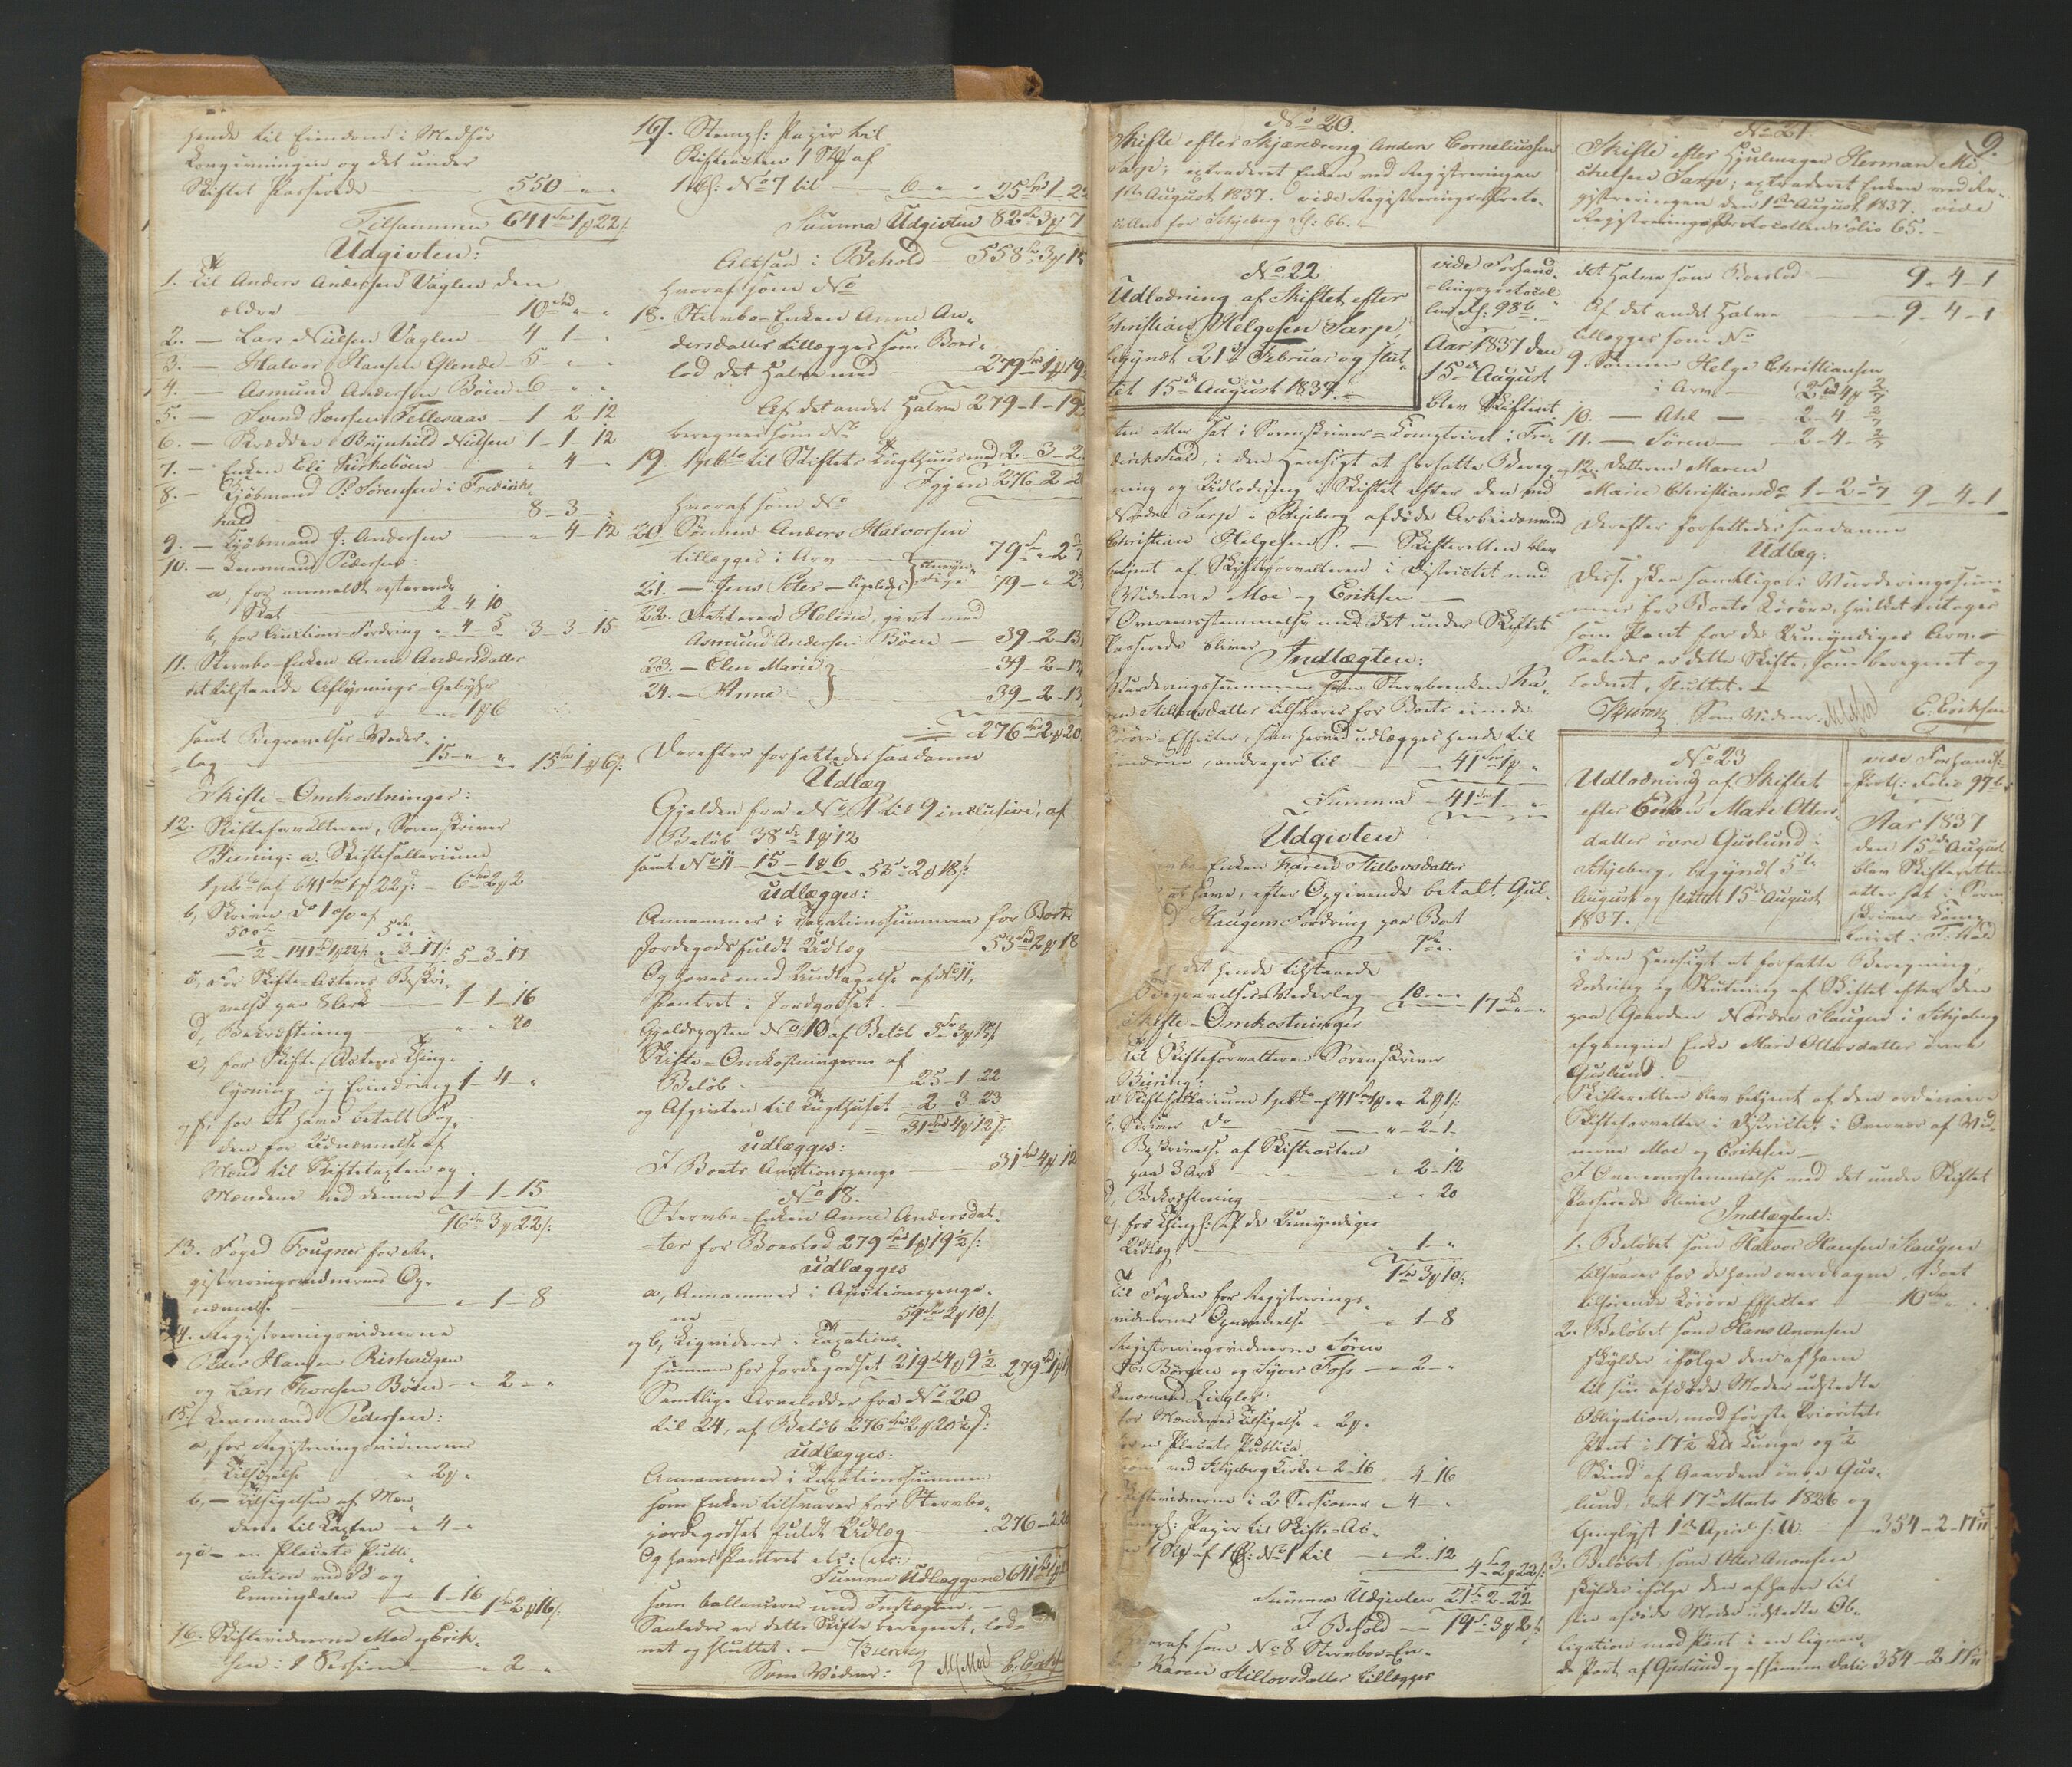 hende til Eiendom i Medfør
Lovgivningen og det under
Skiftet Passerede 550 - " -
Tilsammen 641 Spd 1 # 22 s:
Udgivten:
1. Til Anders Andersen Vaglen den
ældre 10 Spd " "
2. — Lars Nielsen Vaglen — 4 1 -
3. — Halvor Hansen Glende — 5 - "
4. — Asmund Andersen Böen — 6 - " "
5. — Svend Torssen Tellesaas — 1 2 12
6. — Skrædder Brynhild Nielsen 1 - 1 - 12
7. — Enken Eli Kirkebøen " 4 "
8. — Kjøbmand P: Sørensen i Fredriks-
hald 8 - 3 - "
9. — Kjøbmand J: Andersen " 4 - 12
10. — Lensmand Pedersen:
a, for anmeldt resterende
Skat 2 - 4 10
b, for Auctions-Fordring " 4 5 3 - 3 - 15
11. Stervbo-Enken Anne Andersdatter
det tilstaaede Aflysnings-Gebyhr
" 1 # 6
samt Begravelses-Veder-
lag 15 - " " 15 Spd 1 # 6 s:
Skifte-Omkostninger:
12. Skifteforvalteren, Sorenskriver
Biering: a. Skiftesallarium
1 pCto af 641 Spd 1 # 22 s: — 6 Spd 2 # 2
b, Skriver Do 1 o/o af
500 5 Spd
1/2 - 141 Spd 1 # 22 s " 3 - 17 s: 5 - 3 - 17
c, For Skifte-Actens Beskri-
velse paa 8 Ark 1 - 1 - 16
d, Bekræftning " " 20
e, for Skifte-Actens Thing-
lysning og Erindring 1 - 4 "
og f. for at have betalt Fog-
den for Udnævnelse af
Mænd til Skiftetaxten og
Mændene ved denne 1 - 1 - 15
16 Spd 3 # 22 s:
13. Foged Fougner for Re-
gistreringsvidnernes Op-
nævnelse " 1 - 8
14. Registreringsvidnerne
Peder Hansen Rishaugen
og Lars Thoresen Böen " 2 - "
15. Lensmand Pedersen:
a, for Registreringsvidnernes
Tilsigelse " 2 # "
b, — Tilsigelsen af Mæn-
dene til Taxten " 4 "
og c — en Placats Publi-
cation ved Id og
Enningdalen 1 - 16
1 Spd 2 # 16 s:
16. Skiftevidnerne Moe og Erik-
sen i 1 Session " 2 - "
17. Stempl: Papir til
Skifteacten 1 Stk af
1 Cl: No 7 til 6 " " 25 Spd 1 - 2
Summa Udgivten 82 Spd 3 # 7
Altsaa i Behold 558 Spd 3 # 15
hvoraf som No
18. Stervbo-Enken Anne An-
dersdatter tillægges som Boes-
lod det Halve med 279 Spd 1 # 19
Af det andet Halve 279 - 1 - 19
beregnes som No
19. 1 pCto til Stiftets Tugthuus med 2 - 3 - 2
Igjen 276 - 2 - 2
hvoraf som No
20. Sønnen Anders Halvorsen
tillægges i Arv 79 Spd " 2
21. — Jens Peter — ligeledes umyndige 79 - " 2
22. Datteren Helene, givt med
Asmund Andersen Böen — 39 - 2 - 13
23. — Elen Marie 39 - 2 - 13
24. — Anne 39 - 2 - 13
276 Spd 2 # 20
Derefter forfattedes saadanne
Udlæg
Gjelden fra No 1 til 9 inclusive, af
Beløb 38 Spd 1 # 12
samt No 11 — 15 - 1 # 6 53 Spd 2 # 18 s:
udlægges:
Annammes i Taxationssummen for Boets
Jordegods fuldt Udlæg 53 Spd 2 # 18
Og haves med Undtagelse af No 11,
Pantret i Jordgodset.
Gjeldsposten No 10 af Beløb 3 Spd 3 # 15 s
Skifte-Omkostningerne af
Beløb 25 - 1 - 22
og Afgivten til Tugthuset 2 - 3 - 23
31 Spd 4 # 12 s:
udlægges:
I Boets Auctionspenge 31 Spd 4 # 12
No 18.
Stervbo-Enken Anne Andersdat-
ter for Boeslod 279 Spd 1 # 19 1/2 s:
udlægges
a, Annammes i Auctionspenge-
ne 59 Spd 2 # 10 s:
og b, Liqviderer i Taxations-
summen for Jordegodset 219 Spd 4 # 9 1/2 279 Spd 1 # 19
Samtlige Arvelodder fra No 20
til 24, af Beløb 276 Spd 2 # 20 1/2 s:
udlægges:
Annammes i Taxationssummen
som Enken tilsvarer for Stervbo-
jordegodset fuldt Udlæg 276 - 2 20
Og haves Pantret etc: etc:
Summa Udlæggene 641 Spd 1 #
som ballancerer med Indtægten.
Saaledes er dette Skifte beregnet, lod-
net og sluttet. — Biering
Som Vidner: M Moe E: Eriksen
No 20.
Skifte efter Skjæredreng Anders Corneliussen
Sarp; extraderet Enken ved Registreringen
1ste August 1837. vide Registrerings-Proto-
collen for Schjeberg Fol: 66.
No 21.
9.
Skifte efter Hjulmager Herman Mi-
chelsen Sarp; extraderet Enken ved Re-
gistreringen den 1ste August 1837. vide
Registreringsprotocollen Folio 65.
No 22
Udlodning af Skiftet efter
Christian Helgesen Sarp,
begyndt 21de Februar og slut-
tet 15de August 1837.
vide Forhand-
lingsprotocol-
len Fol: 98 b.
Aar 1837 den
15de August
blev Skifteret-
ten atter sat i Sorenskriver-Comptoiret i Fre-
drikshald, i den Hensigt at forfatte Bereg-
ning og Udlodning i Skiftet efter den ved
Nordre Sarp i Schjeberg afdøde Arbeidsmand
Christian Helgesen. — Skifteretten blev
betjent af Skifteforvalteren i Districtet med
Vidnerne Moe og Eriksen
I Overensstemmelse med det under Skiftet
Passerede bliver
Indtægten:
Vurderingssummen som Stervboenken Ka-
ren Stillovsdatter tilsvarer for Boets eiende
Løsøre-Effecter, som herved udlægges hende til
Eiendom, andrager til 41 Spd 1 # "
Summa 41 Spd 1 "
Udgivten
Stervbo-Enken Karen Stillovsdatter
at have, efter Opgivende betalt Gul-
Haugens Fordring paa Boet
7 Spd "
det hende tilstaaede
Begravelses-Vederlag 10 - " 17 Spd " "
Skifte-Omkostninger
Til Skifteforvalteren Sorenskriver
Biering:
a Skiftesallarium 1 pCto af 41 Spd 1 # " 2 # 1 s:
b. Skriver Do " 2 - 1
Beskrivelse af Skifteacten
paa 3 Ark " 2 - 12
d, Bekræftning " " 20
e, for Thingl: af de Umyndiges
Udlæg " 1 - "
1 Spd 3 # 10 s:
Til Fogden for Registrerings-
vidnernes Opnævnelse " 1 - 8
Registreringsvidnerne Søren
Børgen og Syver Foss " 2 - "
Lensmand Ziegler:
for Mændenes Tilsigelse " 2 # "
Placats Publica-
tion ved Schjeberg Kirke " 2 - 16 " 4 - 16
Skiftevidnerne i 2 Sessioner " 4 - "
Stempl: Papir til Skifte-Ac-
1 Stk af 1 Cl: No 1 til " 2 12
4 Spd 2 # 22 s:
Summa Udgivten 21 Spd 2 - 22
I Behold 19 Spd 3 # 2 s:
hvoraf som No 8 Stervboe-En-
Karen Stillovsdatter tillægges
det Halve som Boeslod 9 - 4 - 1
Af det andet Halve 9 - 4 - 1
tillægges som No
9. Sønnen Helge Christiansen
i Arv 2 Spd 4 # 2/7
10. — Ahl — 2 - 4 - 2/7
11. — Søren — 2 - 4 - 2/7
og 12. Datteren Maren
Marie Christiansdr 1 - 2 - 1/7 9 - 4 - 1
Derefter forfattedes saadanne
Udlæg:
Disse skeer samtlige i Vurderingssum-
men for Boets Løsøre, hvilket antages
som Pant for de Umyndiges Arv.
Saaledes er dette Skifte, som beregnet og
lodnet, sluttet.
Biering Som Vidner: M Moe E. Eriksen
No 23
Udlodning af Skiftet
efter Enken Mari Otters-
datter øvre Guslund i
Schjeberg, begyndt 5te
August og sluttet 15de August
1837.
vide Forhandl:
Protc: Folio 97 b:
Aar 1837
den 15de August
blev Skifteretten
atter sat i Soren-
skriver-Comp-
toiret i F:hald
i den Hensigt at forfatte Beregning,
Lodning og Slutning af Skiftet efter den
paa Gaarden Nordre Haugen i Schjeberg
afgangne Enke Mari Ottersdatter øvre
Guslund.
Skifteretten blev betjent af den ordinaire
Skifteforvalter i Districtet i Overvær af Vid-
nerne Moe og Eriksen
I Overensstemmelse med det under Skiftet
Passerede bliver
Indtægten:
1. Beløbet som Halvor Hansen Haugen
tilsvarer for de ham overdragne, Boet
tilhørende Løsøre Effecter 10 Spd " "
2. Beløbet som Hans Anonsen
skylder ifølge den af ham
til sin afdøde Moder udstedte
Obligation, mod første Prioritets
Pant i 17 1/2 Lll Tunge og 1/2
Skind af Gaarden øvre Gus-
lund, dat 17de Marts 1826 og
thinglyst 1ste April s: A: 354 - 2 - 17
3. Beløbet som Otter Anonsen
skylder ifølge den af ham til
sin afdøde Moder udstedte Ob-
ligation mod Pant i en lignen-
de Part af Guslund og af samme Dato 354 - 2 17